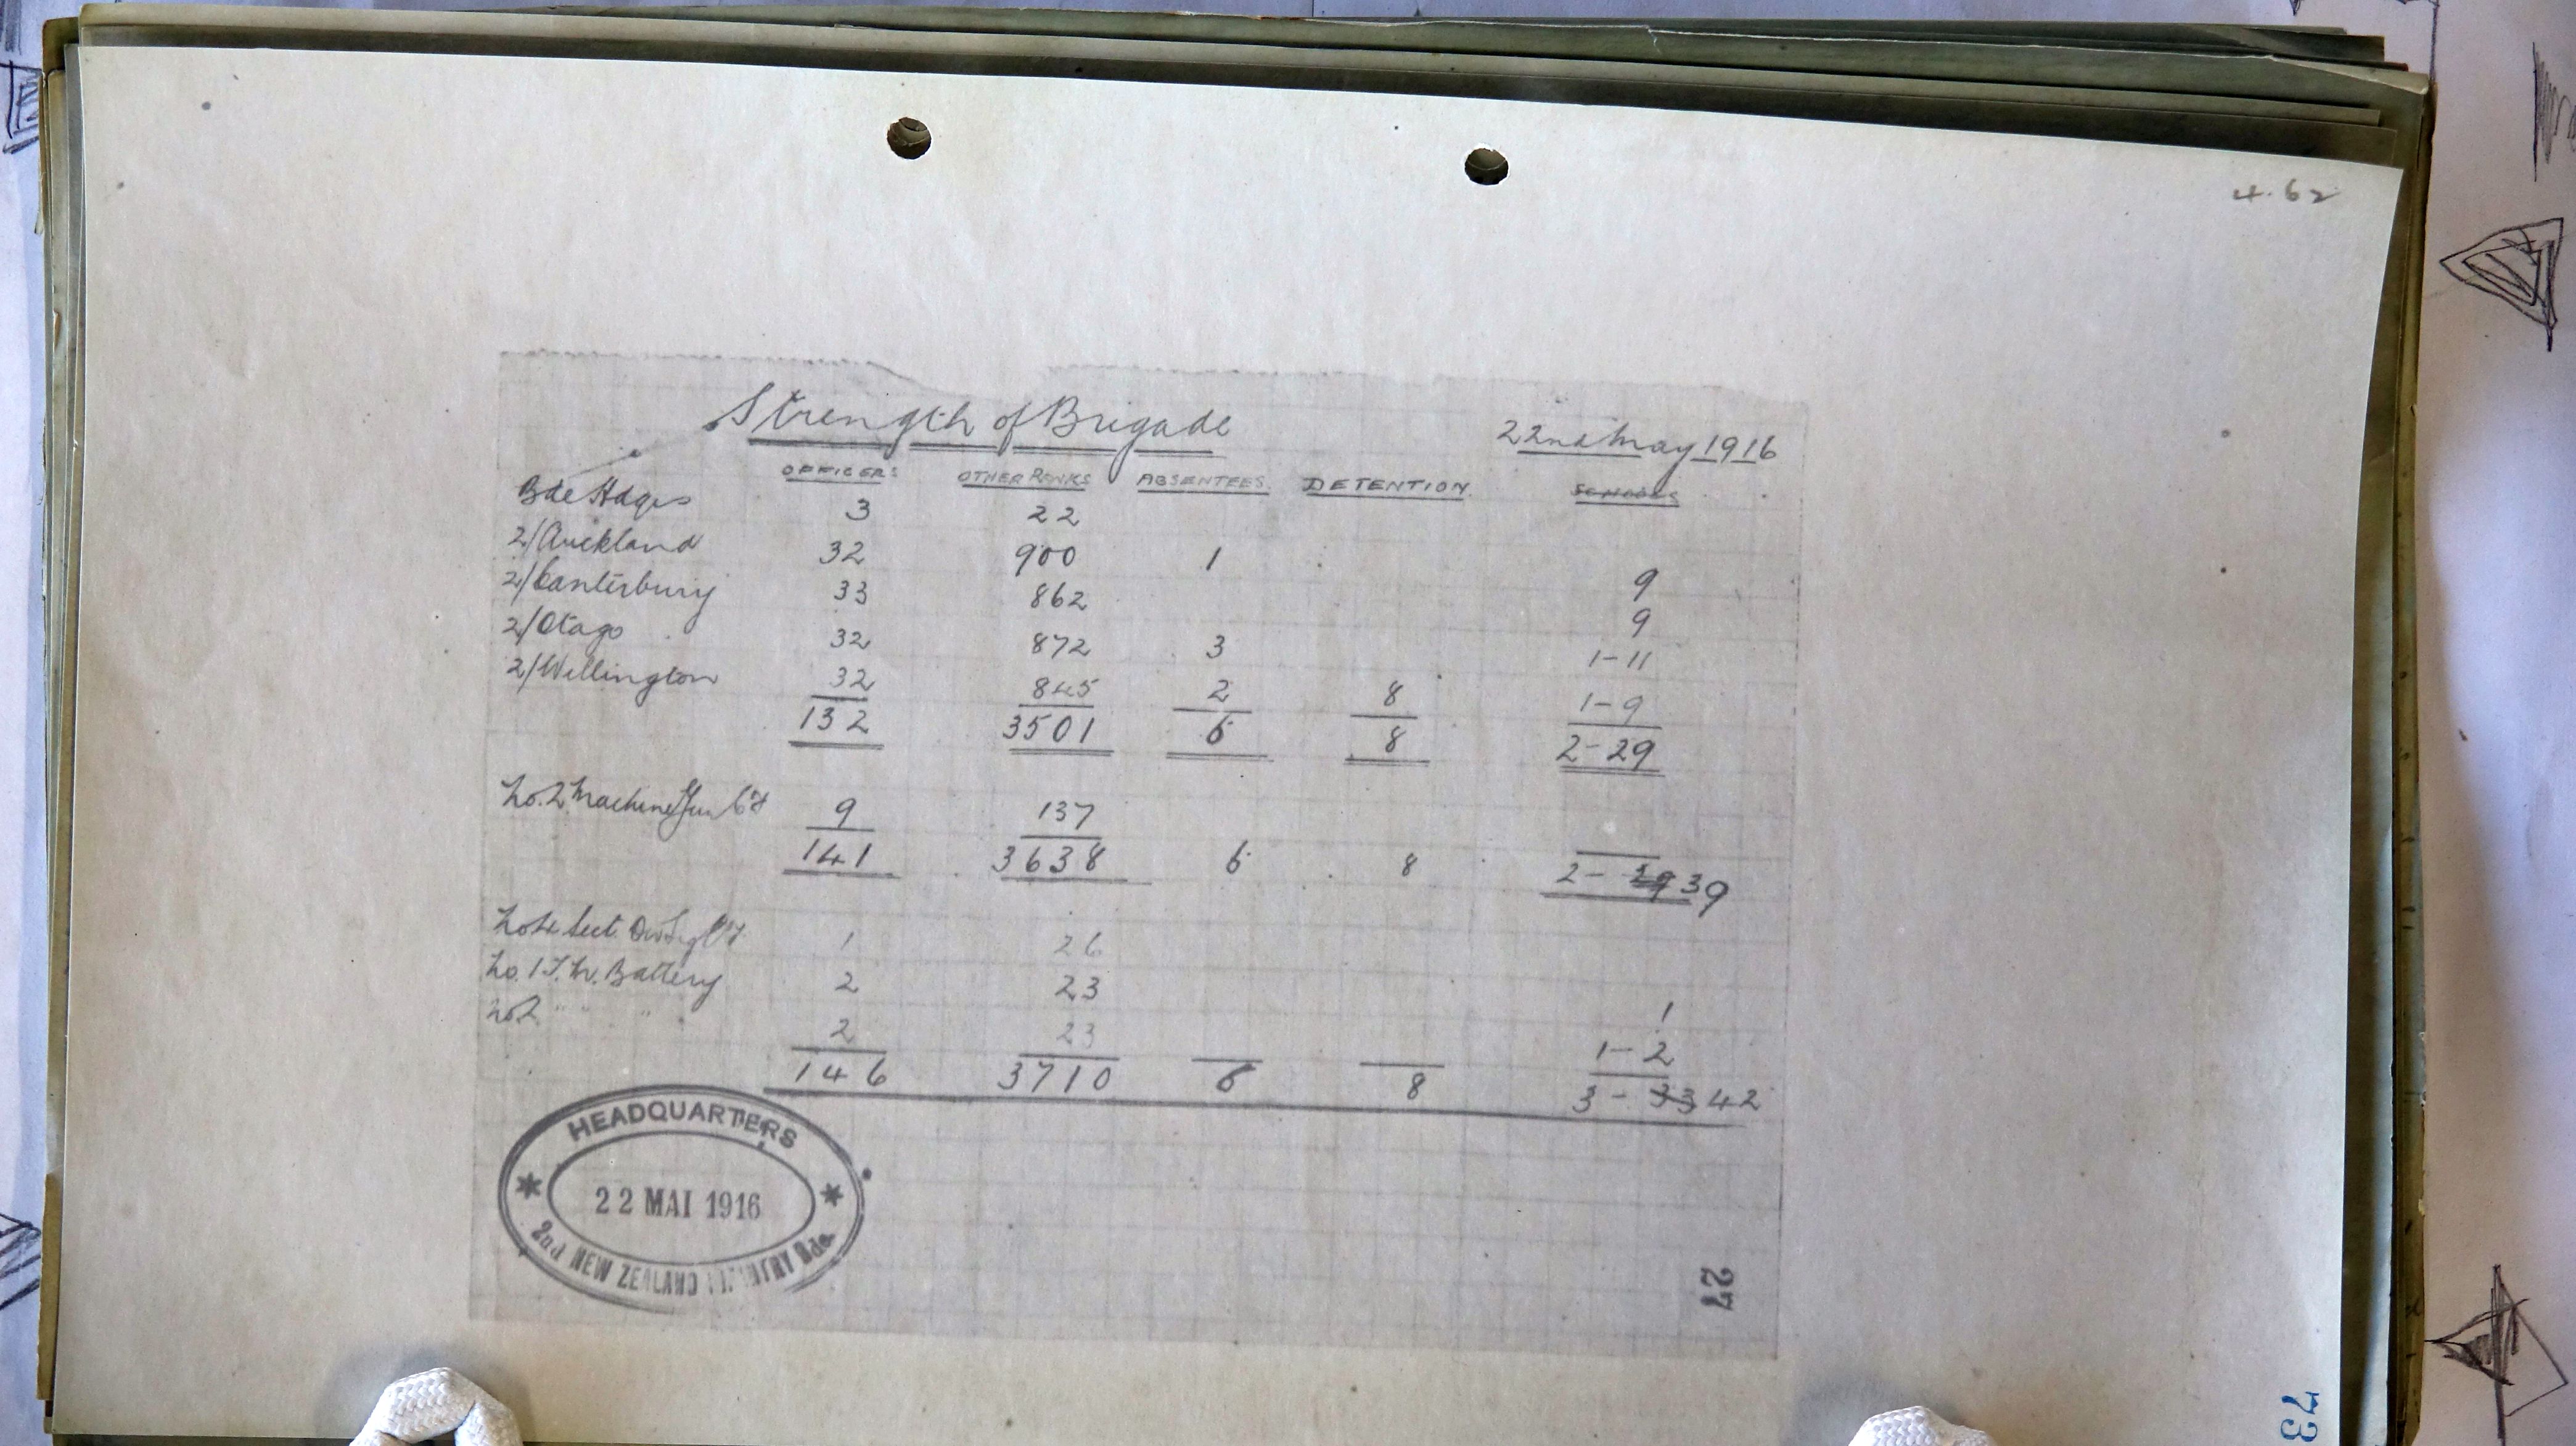 4.62
Strength of Brigade 22nd May 1916
OFFICERS OTHER RANKS ABSENTEES. DETENTION. SCHOOLS
Bde Hdqrs 3 22
2/Auckland 32 900 1 9
2/Canterbury 33 862 9
2/Otago 32 872 3 1-11
2/Wellington 32 845 2 8 1-9
132 3501 6 8 2-29
No. 2 Machine Gun Coy 9 137
141 3638 6 8 2- 29 39
No 4 Sect. Div Sig Coy 1 26
No. 1 T. M. Battery 2 23 1
No 2 " " " 2 23 1-2
146 3710 6 8 3- 33 42
HEADQUARTERS
22 MAI 1916
2nd NEW ZEALAND INFANTRY Bde
27
73